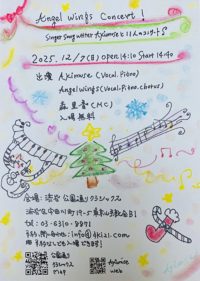 Angel Wings Concert!
Singer Song writer Akimuse と 11人のコンサート
2025. 12/7(日) open 14:10 Start 14:40
出演 Akimuse (Vocal. Piano)
Angel wings (Vocal. Piano. chorus)
森 里香 (MC)
入場無料
会場: 渋谷 公園通りクラシックス
渋谷区宇田川町19-5 東京山手教会B1
Tel: 03-6310-8871
公園通り
クラシックス
Akimuse
web